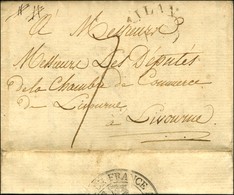 A Messieurs
Messieurs Les Députés
de la Chambre de Commerce
de Livourne
à Livourne
FRANCE